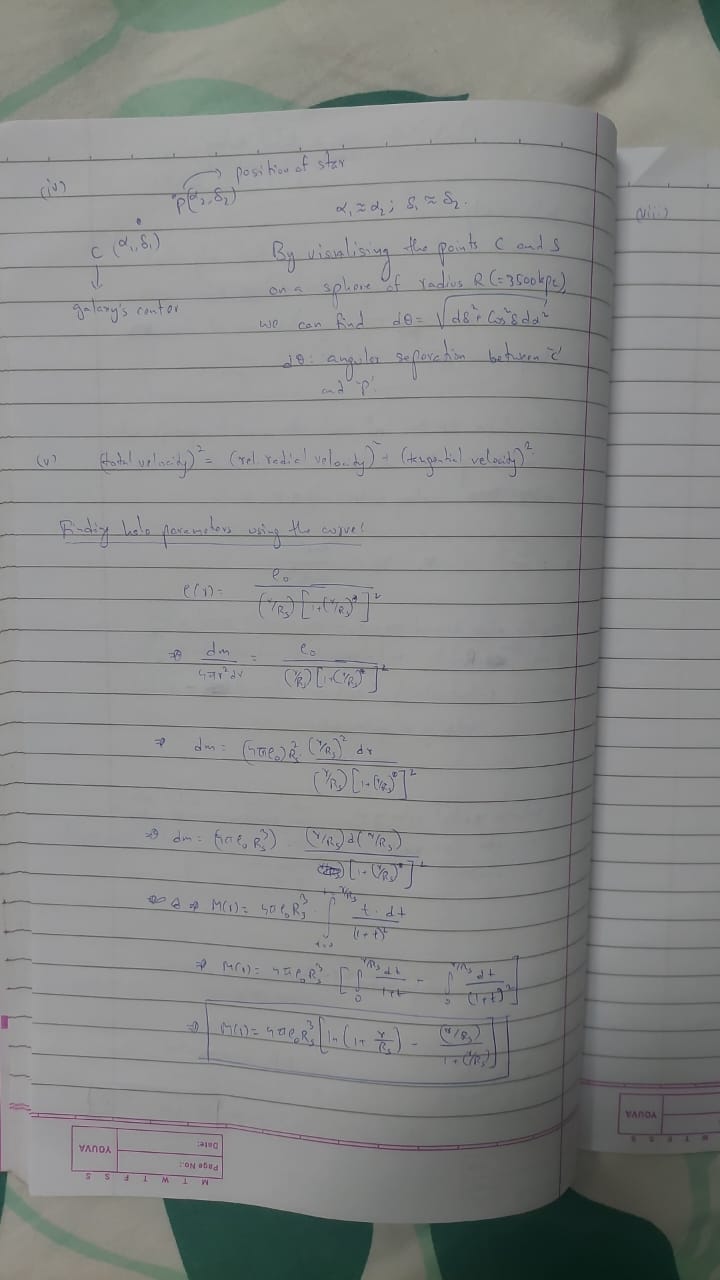 (iv)
position of star
P(α₂, δ₂)
α₁ ≈ α₂ ; δ₁ ≈ δ₂.
C (α₁, δ₁)
galaxy's center
By visualising the points C and S
on a sphere of radius R (= 3500kpc)
we can find dθ = √(dδ² + Cos²δ dα²)
dθ: angular separation between 'c'
and 'p'.
(v) (total velocity)² = (rel. radial velocity)² + (tangential velocity)².
Finding halo parameters using the curve:
ρ(r) = ρ₀ / (r/Rs) [1+(r/Rs)]²
⇒ dm / 4πr²dr = ρ₀ / (r/Rs) [1+(r/Rs)]²
⇒ dm = (4πρ₀) Rs² (r/Rs)² dr / (r/Rs) [1+(r/Rs)]²
⇒ dm = (4πρ₀ Rs³) · (r/Rs) d(r/Rs) / [1+(r/Rs)]²
⇒ M(r) = 4πρ₀Rs³ ∫_{t=0}^{r/Rs} t · dt / (1+t)²
⇒ M(r) = 4πρ₀Rs³ · [∫_0^{r/Rs} dt / 1+t − ∫_0^{r/Rs} dt / (1+t)²]
⇒ M(r) = 4πρ₀Rs³ [ln(1+ r/Rs) − (r/Rs) / 1+(r/Rs)]
(viii)
M T W T F S S
Page No.:
Date:
YOUVA
M T W T F S S
YOUVA